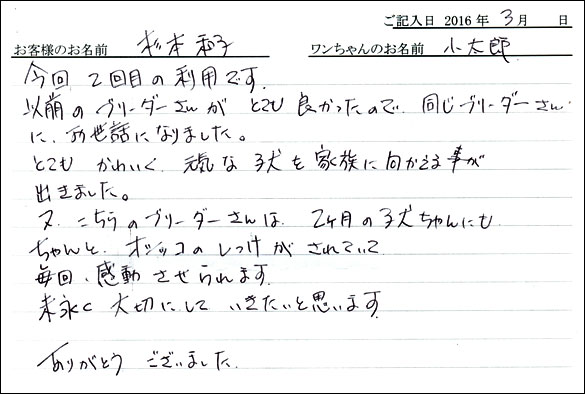 ご記入日 2016年 3月 日
お客様のお名前 杉本 和子 ワンちゃんのお名前 小太郎
今回 2回目の利用です.
以前のブリーダーさんが とても 良かったので、同じブリーダーさん
に、お世話になりました。
とても かわいく、元気な子犬を家族に向かえる事が
出きました。
又、こちらのブリーダーさんは、2ヶ月の子犬ちゃんにも
ちゃんと、オシッコのしつけがされていて
毎回、感動させられます.
末永く 大切にして いきたいと思います.
ありがとう ございました.